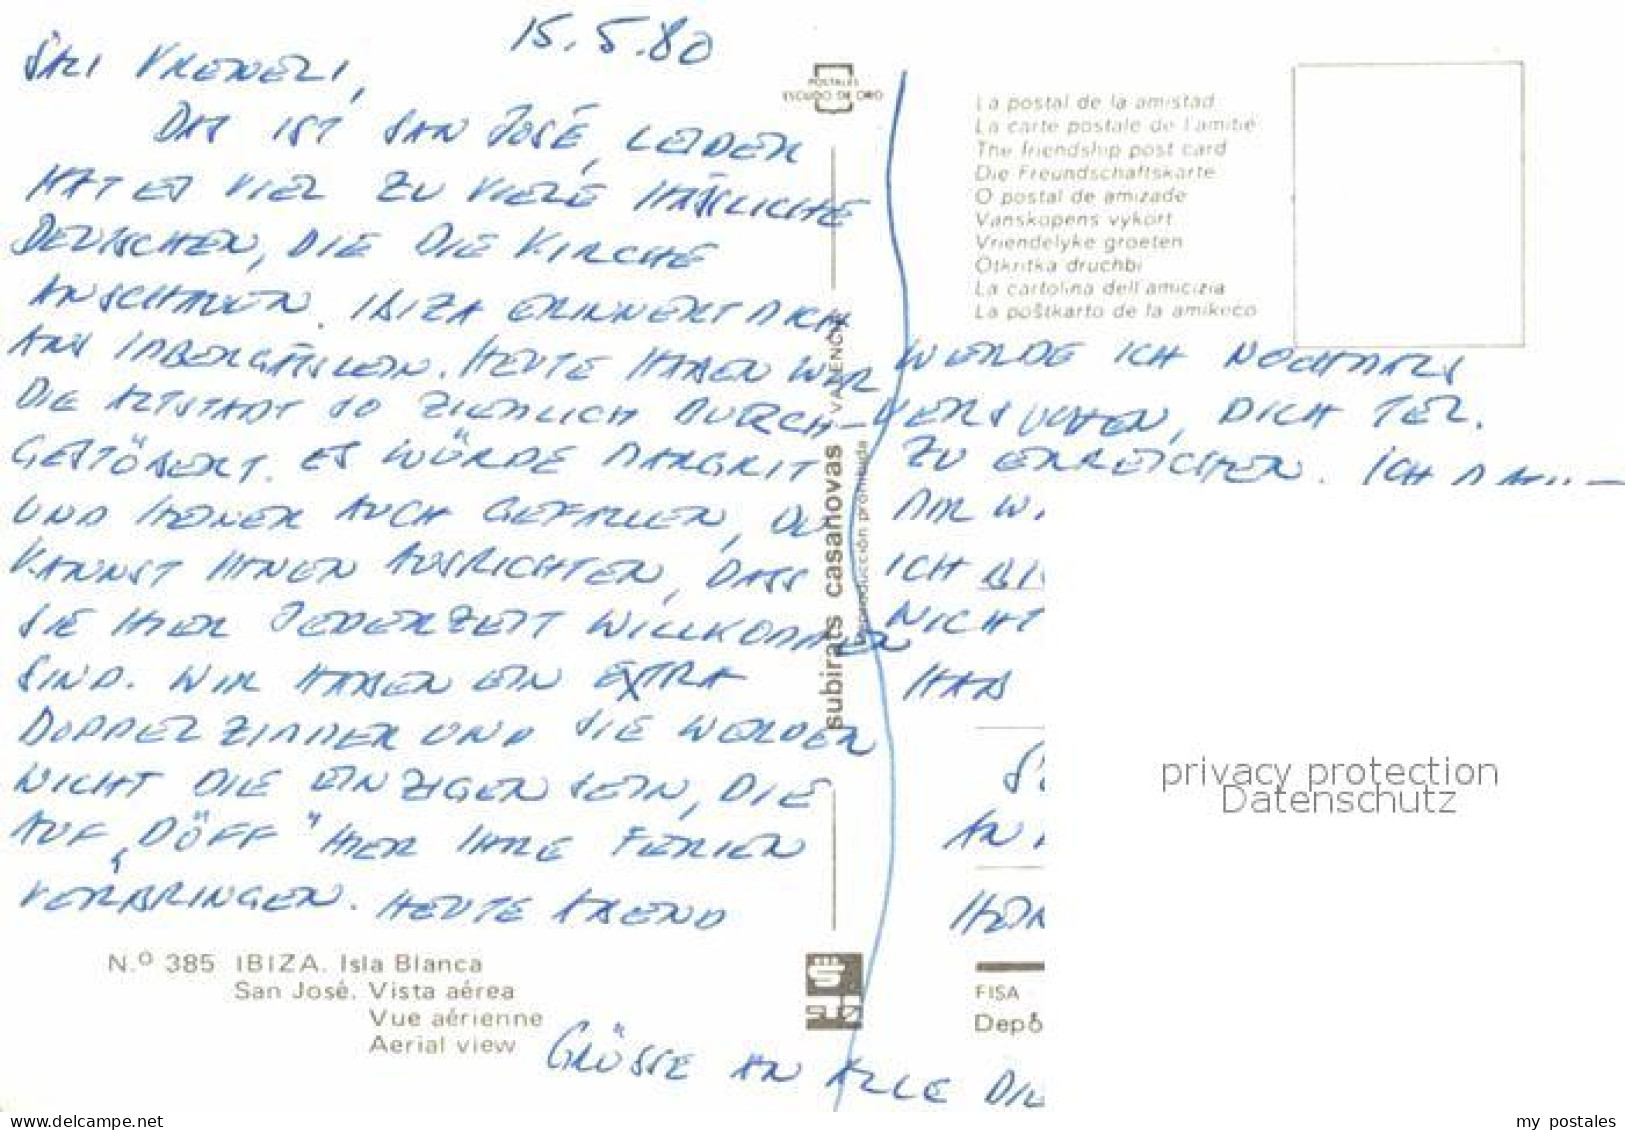 15.5.80
SALI VRENELI,
DAS IST SAN JOSÉ, LEIDER
HAT ES VIEL ZU VIELE HÄSSLICHE
DEUTSCHEN, DIE DIE KIRCHE
ANSCHAUEN. IBIZA ERINNERT MICH
ANS IMBERGÄSSLEIN. HEUTE HABEN WIR
DIE ALTSTADT SO ZIEMLICH DURCH-
GESTÖBERT. ES WÜRDE MARGRIT
UND HEINER AUCH GEFALLEN, DU
KANNST IHNEN AUSRICHTEN, DASS
SIE HIER JEDERZEIT WILLKOMMEN
SIND. WIR HABEN EIN EXTRA
DOPPELZIMMER UND SIE WERDEN
NICHT DIE EINZIGEN SEIN, DIE
AUF „DÖFF" HIER IHRE FERIEN
VERBRINGEN. HEUTE ABEND
WERDE ICH NOCHMALS
VERSUCHEN, DICH TEL.
ZU ERREICHEN. ICH
MIR
ICH
NICHT
HAB
AN
GRÜSSE AN ALLE DIE
N.º 385 IBIZA. Isla Blanca
San José. Vista aérea
Vue aérienne
Aerial view
POSTALES
ESCUDO DE ORO
subirats casanovas VALENCIA
Reproducción prohibida
La postal de la amistad
La carte postale de l'amitié
The friendship post card
Die Freundschaftskarte
O postal de amizade
Vanskapens vykort
Vriendelyke groeten
Otkritka druchbi
La cartolina dell'amicizia
La poŝtkarto de la amikeco
FISA
Depó
privacy protection
Datenschutz
www.delcampe.net
my_postales